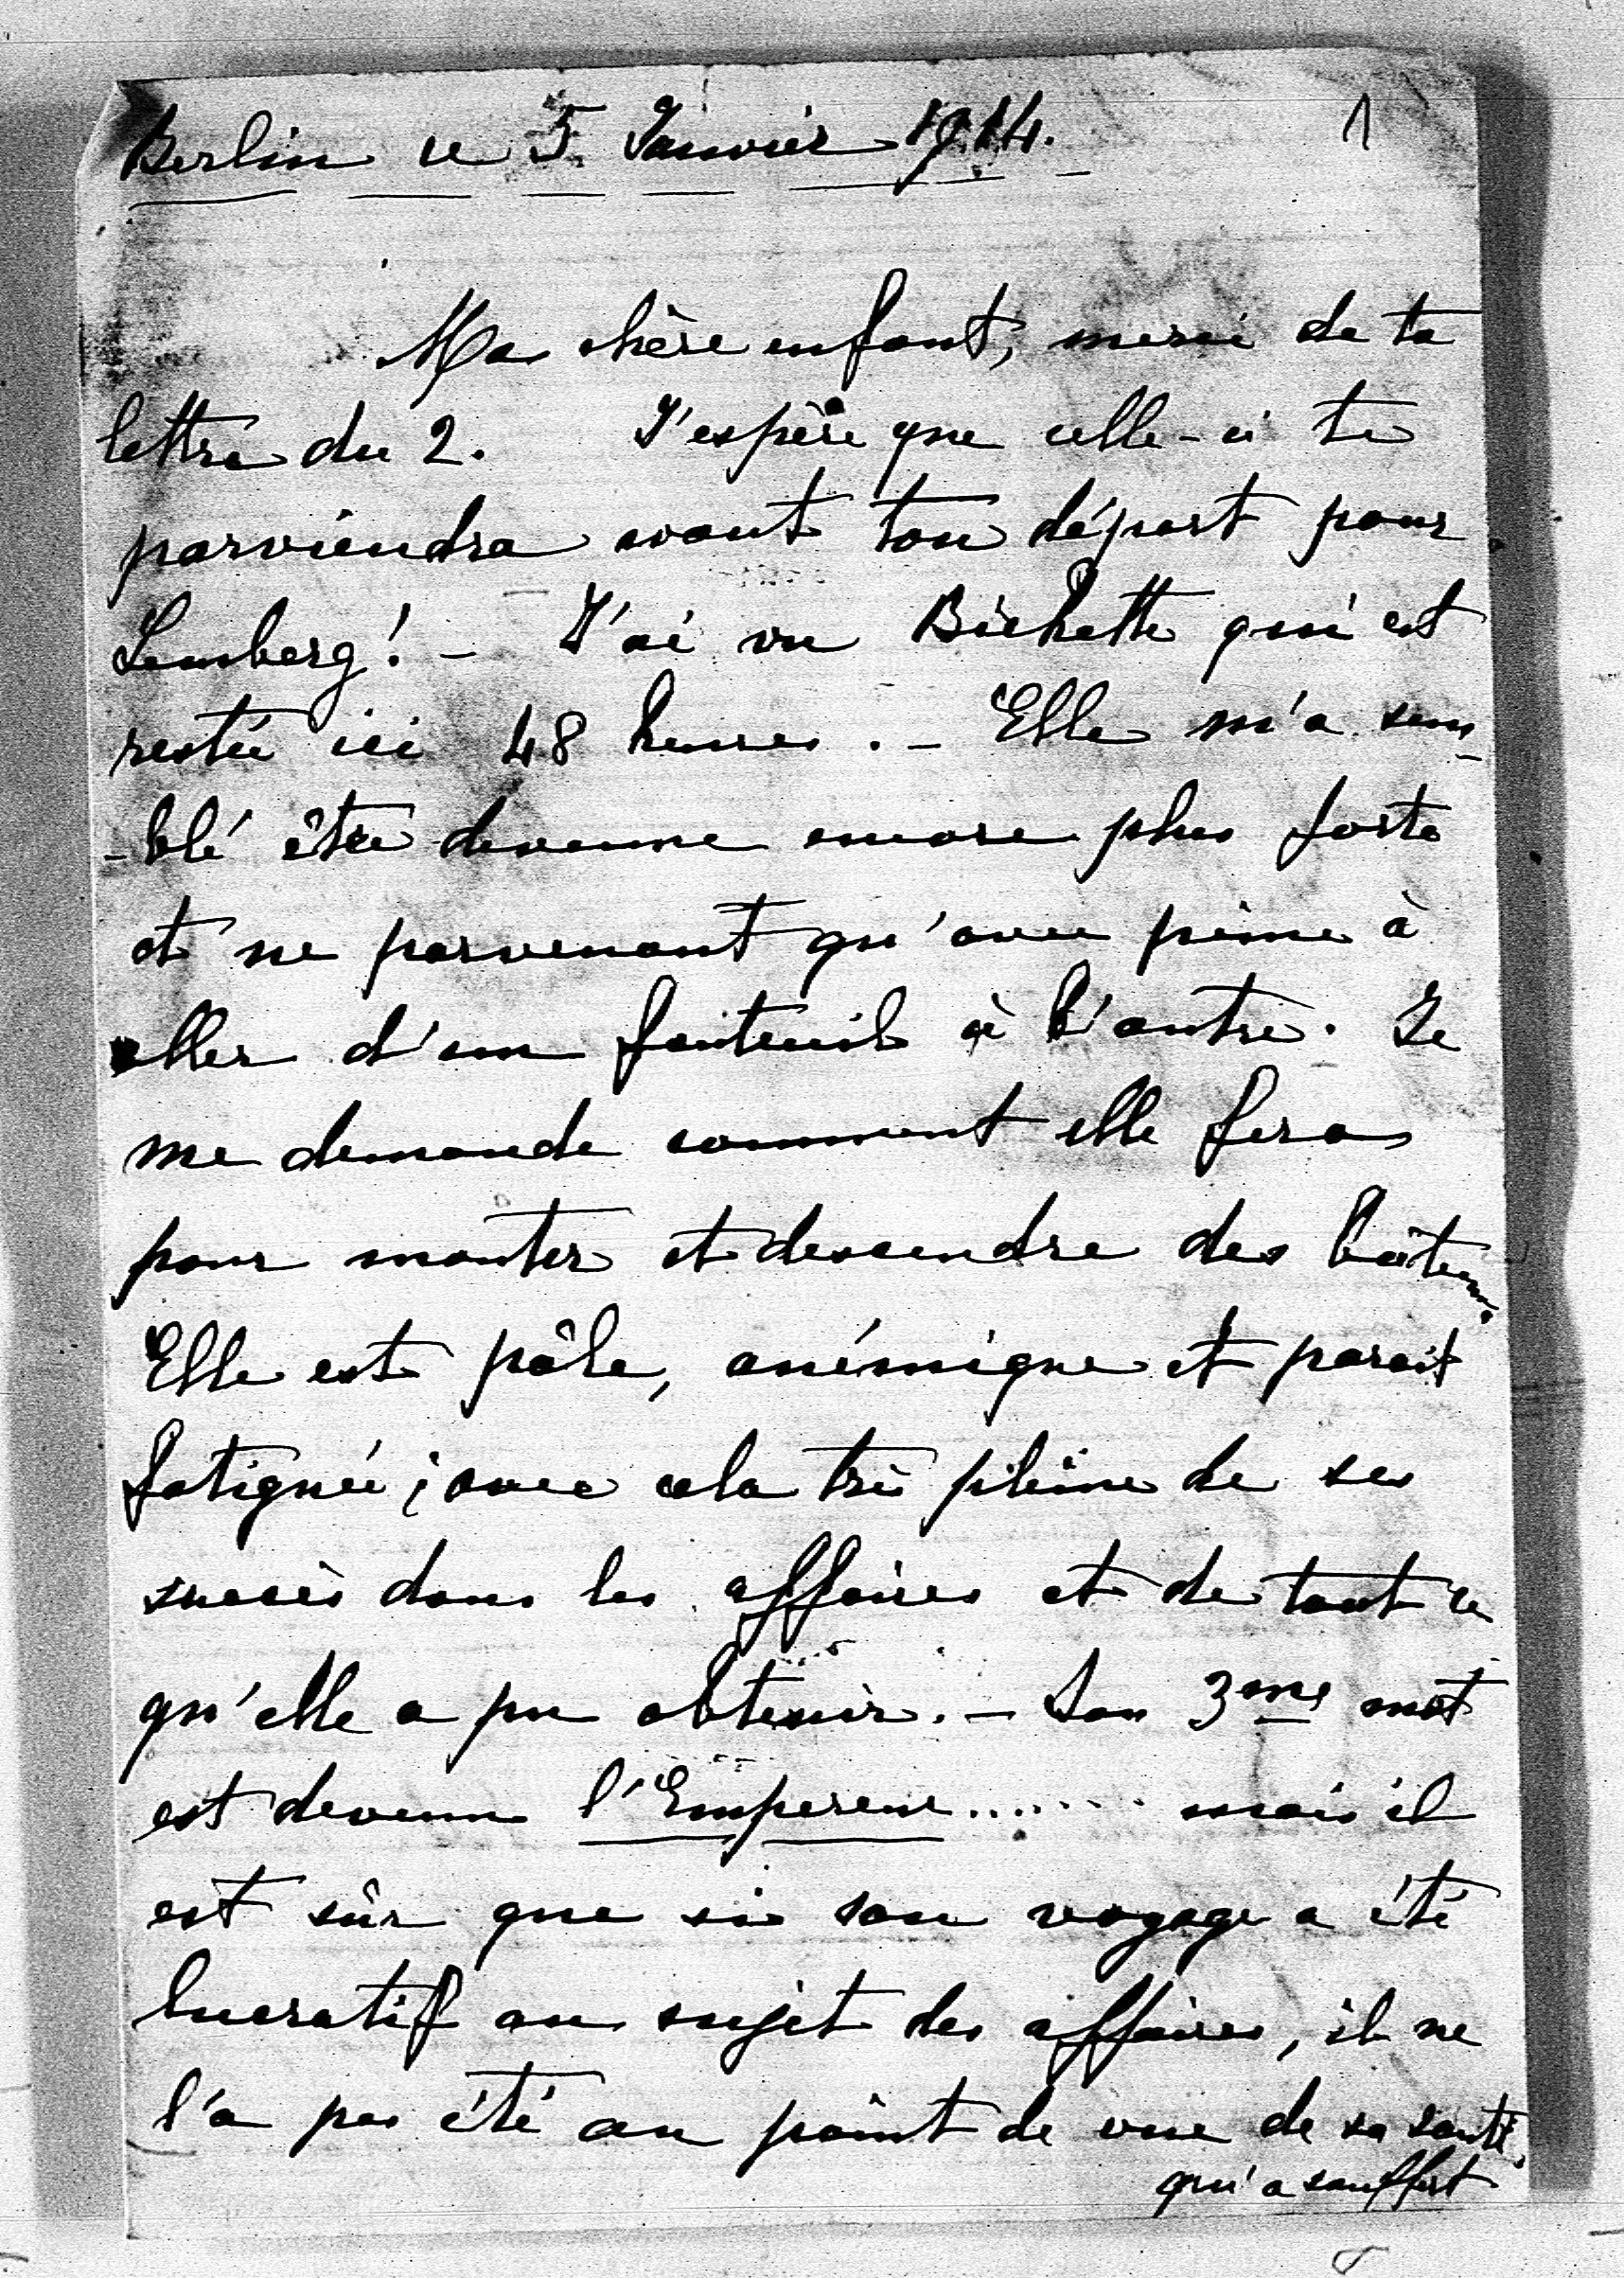 Berlin le 5 Janvier 1914.
1
Ma chère enfant, merci de ta
lettre du 2. J'espère que celle-ci te
parviendra avant ton départ pour
Lemberg! - J'ai vu Bichette qui est
restée ici 48 heures. - Elle m'a sem-
-blé être devenue encore plus forte
et ne parvenant qu'avec peine à
aller d'un fauteuil à l'autre. Je
me demande comment elle fera
pour monter et descendre des bateaux.
Elle est pâle, anémique et parait
fatiguée; avec cela très pleine de ses
succès dans les affaires et de tout ce
qu'elle a pu obtenir. - Son 3me mot
est devenu l'Empereur....... mais il
est sûr que si son voyage a été
lucratif au sujet des affaires, il ne
l'a pas été au point de vue de sa santé,
qui a souffert